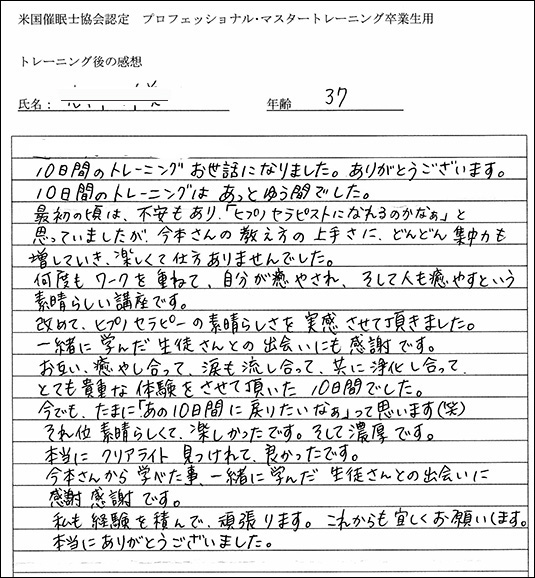 米国催眠士協会認定　プロフェッショナル・マスタートレーニング卒業生用
トレーニング後の感想
氏名：
年齢　37
10日間のトレーニング お世話になりました。ありがとうございます。
10日間のトレーニングは あっとゆう間でした。
最初の頃は、不安もあり、「ヒプノセラピストになれるのかなぁ」と
思っていましたが、今本さんの教え方の上手さに、どんどん集中力も
増していき、楽しくて仕方ありませんでした。
何度も ワークを重ねて、自分が癒やされ、そして人も癒やすという
素晴らしい講座です。
改めて、ヒプノセラピーの素晴らしさを 実感させて頂きました。
一緒に学んだ生徒さんとの出会いにも感謝です。
お互い、癒やし合って、涙も流し合って、共に浄化し合って、
とても貴重な 体験をさせて頂いた 10日間でした。
今でも、たまに「あの10日間に戻りたいなぁ」って思います(笑)
それ位 素晴らしくて、楽しかったです。そして濃厚です。
本当に クリアライト 見つけれて、良かったです。
今本さんから 学べた事、一緒に学んだ 生徒さんとの出会いに
感謝 感謝 です。
私も 経験を積んで、頑張ります。これからも宜しくお願いします。
本当にありがとうございました。